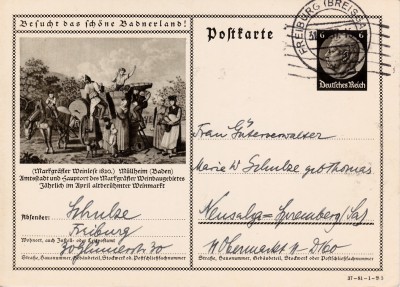 Besucht das schöne Badnerland!
(Markgräfler Weinlese 1820.) Müllheim (Baden)
Amtsstadt und Hauptort des Markgräfler Weinbaugebietes
Jährlich im April altberühmter Weinmarkt
Absender: Schulze
Freiburg
Wohnort, auch Zustell- oder Leitpostamt
30
Straße, Hausnummer, Gebäudeteil, Stockwerk od. Postschließfachnummer
Postkarte
FREIBURG (BREISGAU)
6 6
Deutsches Reich
Frau Güterverwalter
Marie W Schulze geb Thomas
Neusalza-Spremberg (Sa)
Obermarkt
Straße, Hausnummer, Gebäudeteil, Stockwerk oder Postschließfachnummer
37-81-1-B5